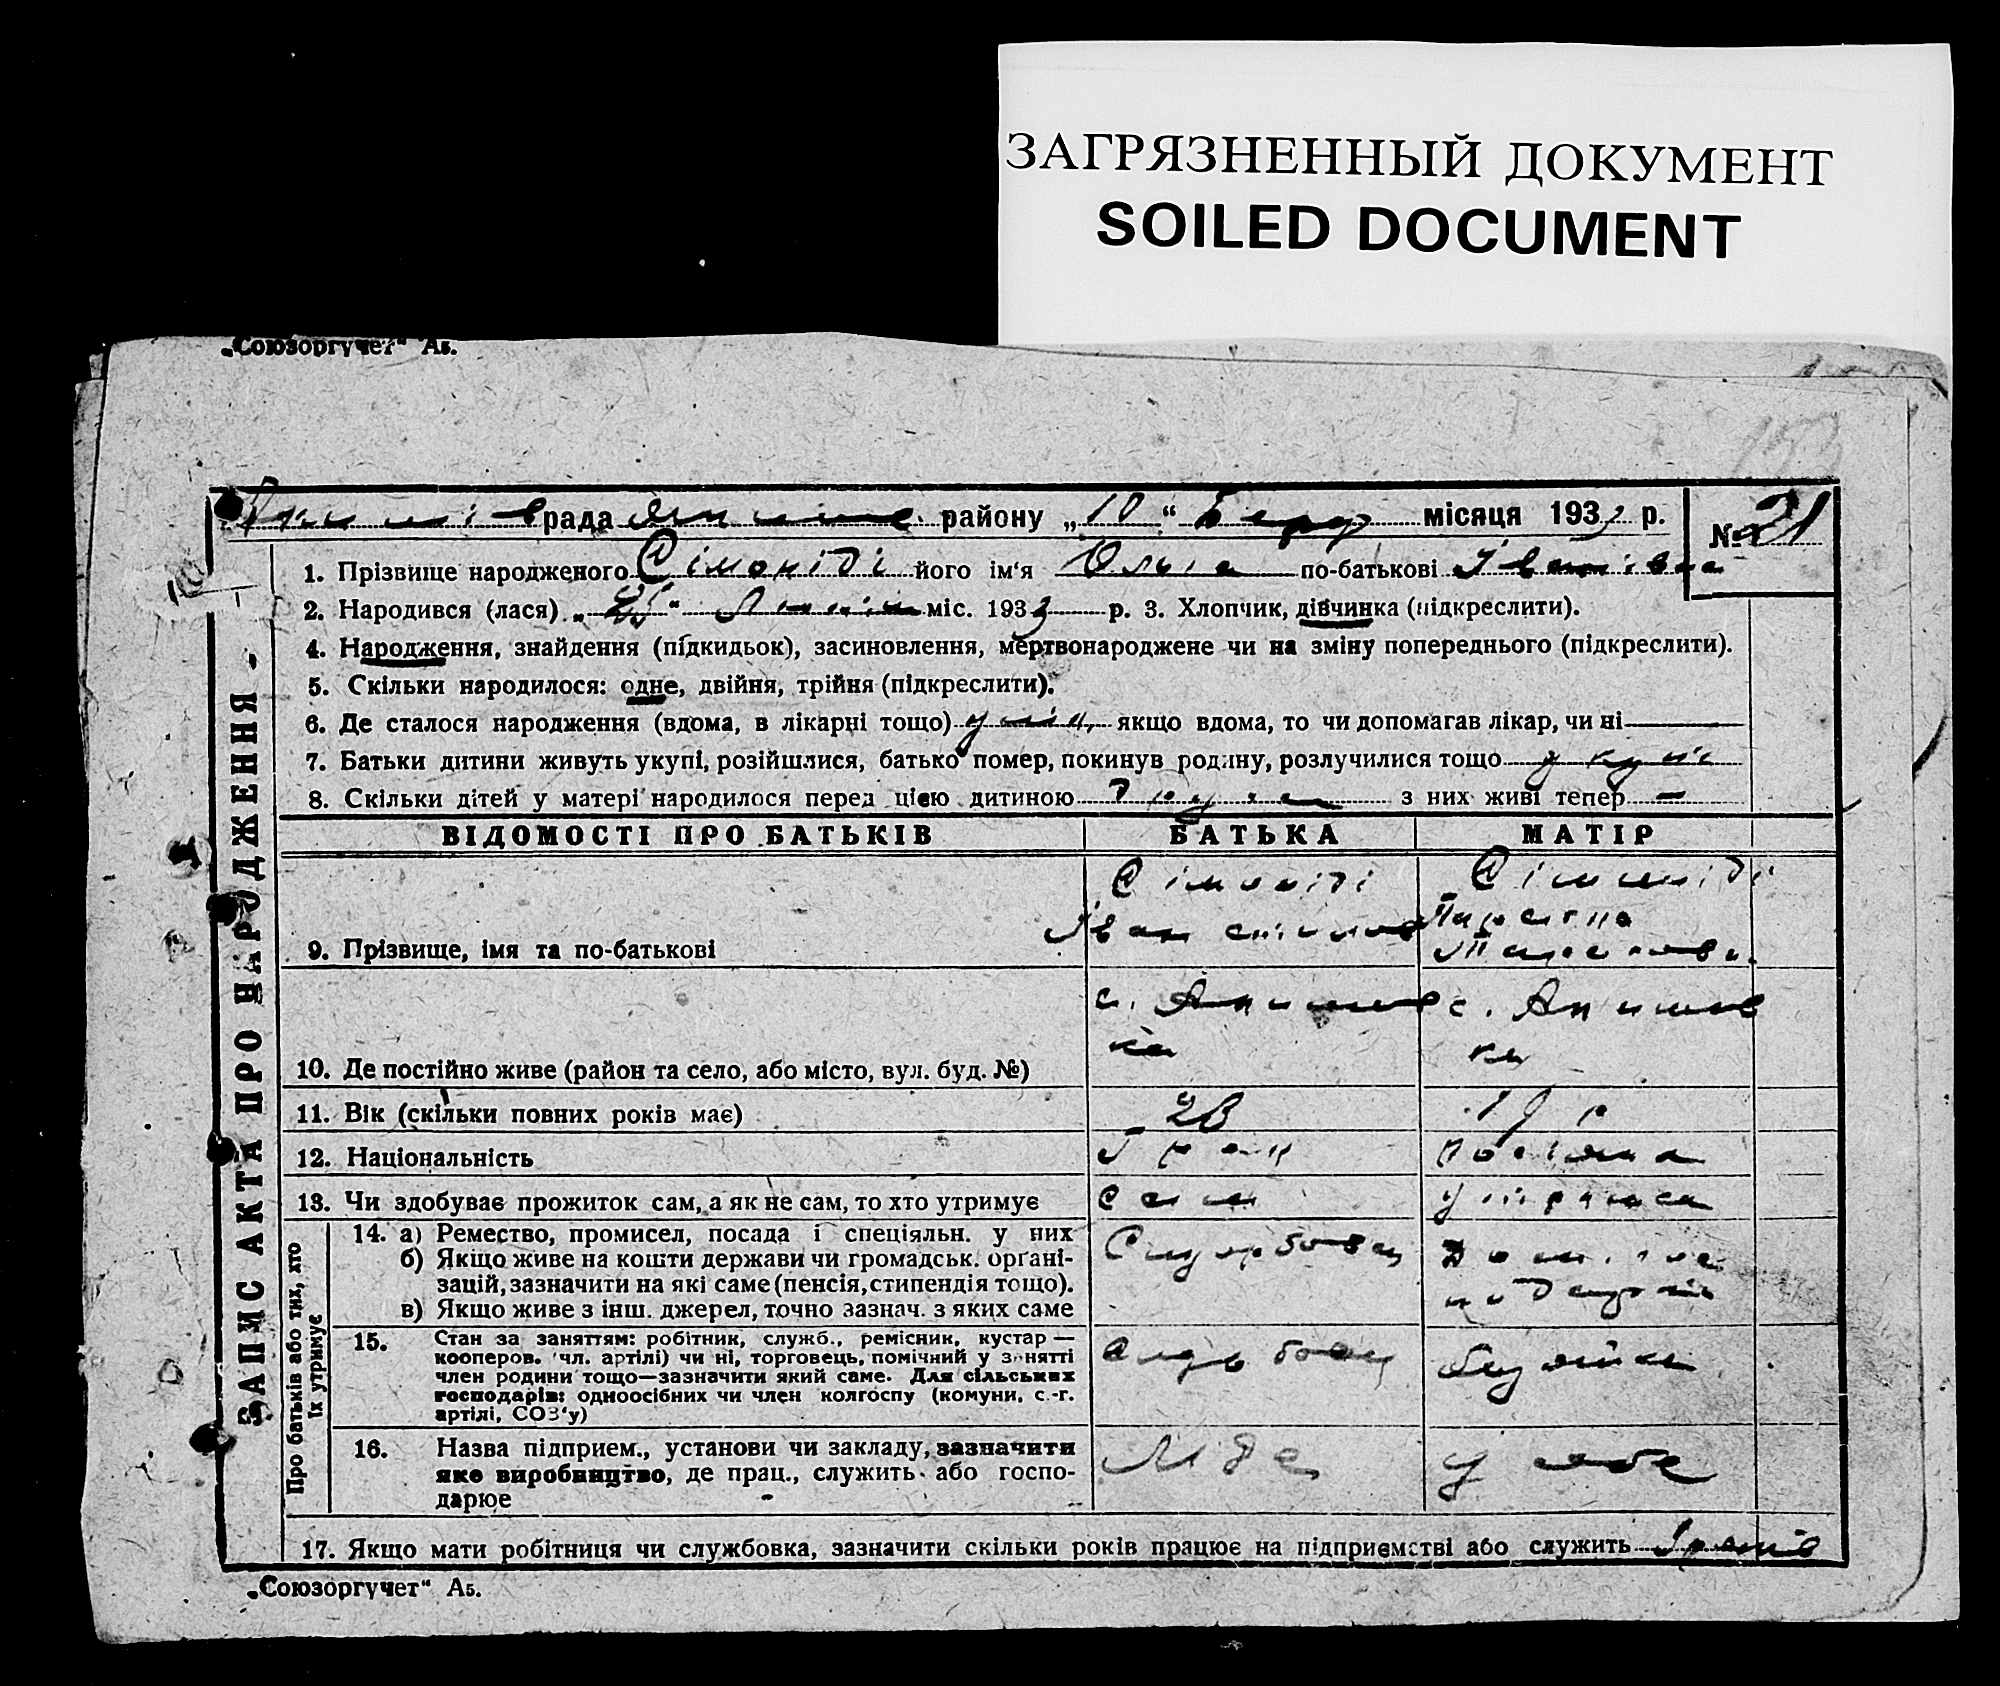 ЗАГРЯЗНЕННЫЙ ДОКУМЕНТ
SOILED DOCUMENT
„Союзоргучет“ А5.
153
рада району „10“ Берез місяця 1933 р. № 21
1. Прізвище народженого Сімоніді його ім‘я Ольга по-батькові Іванівна
2. Народився (лася) „25“ міс. 1933 р. 3. Хлопчик, дівчинка (підкреслити).
4. Народження, знайдення (підкидьок), засиновлення, мертвонароджене чи на зміну попереднього (підкреслити).
5. Скільки народилося: одне, двійня, трійня (підкреслити).
6. Де сталося народження (вдома, в лікарні тощо) якщо вдома, то чи допомагав лікар, чи ні —
7. Батьки дитини живуть укупі, розійшлися, батько помер, покинув родину, розлучилися тощо у купі
8. Скільки дітей у матері народилося перед цією дитиною друга з них живі тепер —
ЗАПИС АКТА ПРО НАРОДЖЕННЯ -
ВІДОМОСТІ ПРО БАТЬКІВ БАТЬКА МАТІР
Сімоніді Сімоніді
Іван
9. Прізвище, імя та по-батькові
с. Анишов с. Анишов
ка ка
10. Де постійно живе (район та село, або місто, вул. буд. №)
11. Вік (скільки повних років має) 28 19 р
12. Національність Грек
13. Чи здобуває прожиток сам, а як не сам, то хто утримує сам
Про батьків або тих, хто їх утримує
14. а) Ремество, промисел, посада і спеціяльн. у них
б) Якщо живе на кошти держави чи громадськ. органі-
зацій, зазначити на які саме (пенсія, стипендія тощо).
в) Якщо живе з інш. джерел, точно зазнач. з яких саме
Службовец
15. Стан за заняттям: робітник, служб., ремісник, кустар —
кооперов. чл. артілі) чи ні, торговець, помічний у занятті
член родини тощо—зазначити який саме. Для сільських
господарів: одноосібних чи член колгоспу (комуни, с.-г.
артілі, СОЗ‘у)
16. Назва підприєм., установи чи закладу, зазначити
яке виробництво, де прац., служить або госпо-
дарює
у себе
17. Якщо мати робітниця чи службовка, зазначити скільки років працює на підприємстві або служить
„Союзоргучет“ А5.